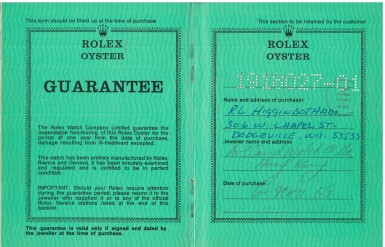 This form should be filled up at the time of purchase
ROLEX
OYSTER
GUARANTEE
The Rolex Watch Company Limited guarantee the
dependable functioning of this Rolex Oyster for the
period of one year from the date of purchase,
damage resulting from ill-treatment excepted.
This watch has been entirely manufactured by Rolex,
Bienne and Geneva. It has been minutely examined
and regulated and is certified to be in perfect
condition.
IMPORTANT: Should your Rolex require attention
during the guarantee period, please return it to the
jeweller who supplied it or to any of the official
Rolex Service stations listed at the end of this
booklet.
This guarantee is valid only if signed and dated by
the jeweller at the time of purchase.
This section to be retained by the customer
ROLEX
OYSTER
Name and address of purchaser:
RL HIGGINBOTHAM
306 W. CHAPEL ST.
DODGEVILLE, WI 53533
Jeweller name and address:
Date of purchase: